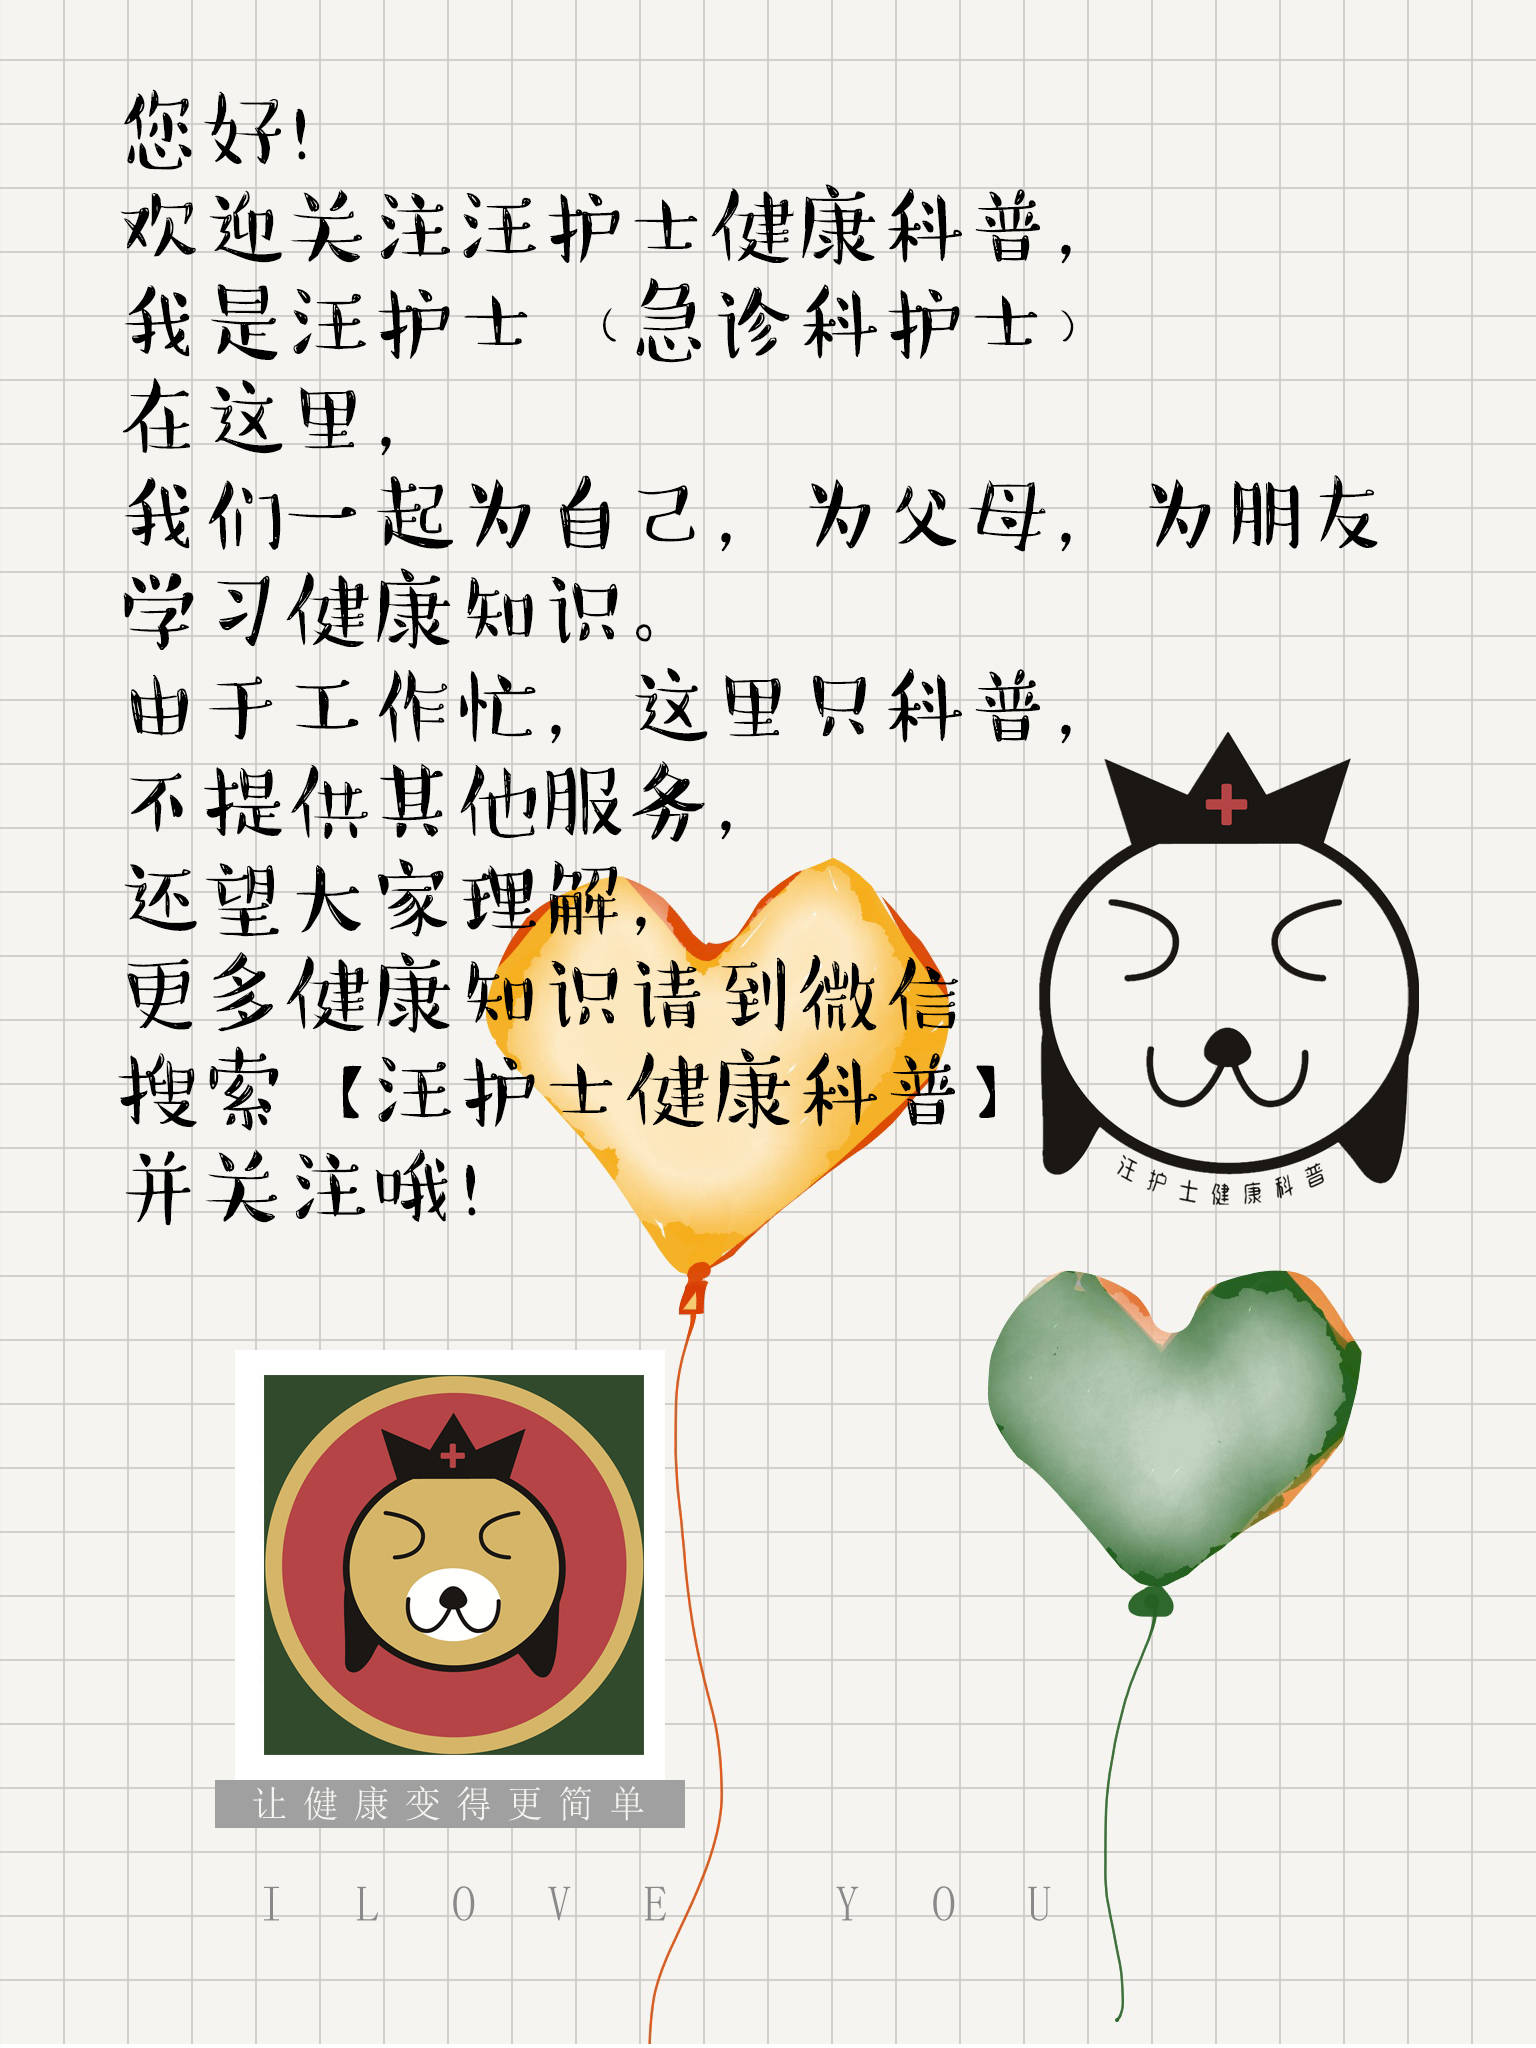 您好!
欢迎关注汪护士健康科普,
我是汪护士 (急诊科护士)
在这里,
我们一起为自己, 为父母, 为朋友
学习健康知识。
由于工作忙, 这里只科普,
不提供其他服务,
还望大家理解,
更多健康知识请到微信
搜索【汪护士健康科普】
并关注哦!
汪护士健康科普
让健康变得更简单
I LOVE YOU